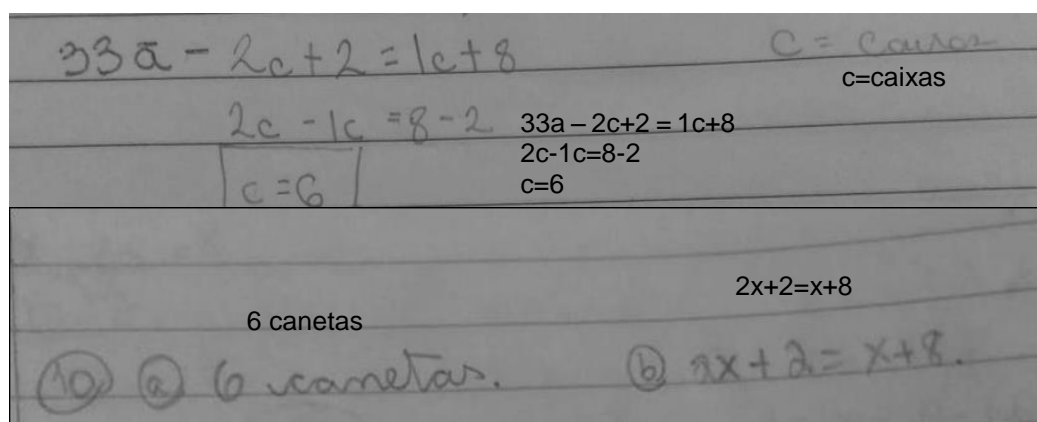 33ā - 2c+2 = 1c+8
C = Caixas
c=caixas
2c - 1c = 8 - 2
c = 6
33a – 2c+2 = 1c+8
2c-1c=8-2
c=6
2x+2=x+8
6 canetas
10 a 6 canetas.
b 2x + 2 = x+8.